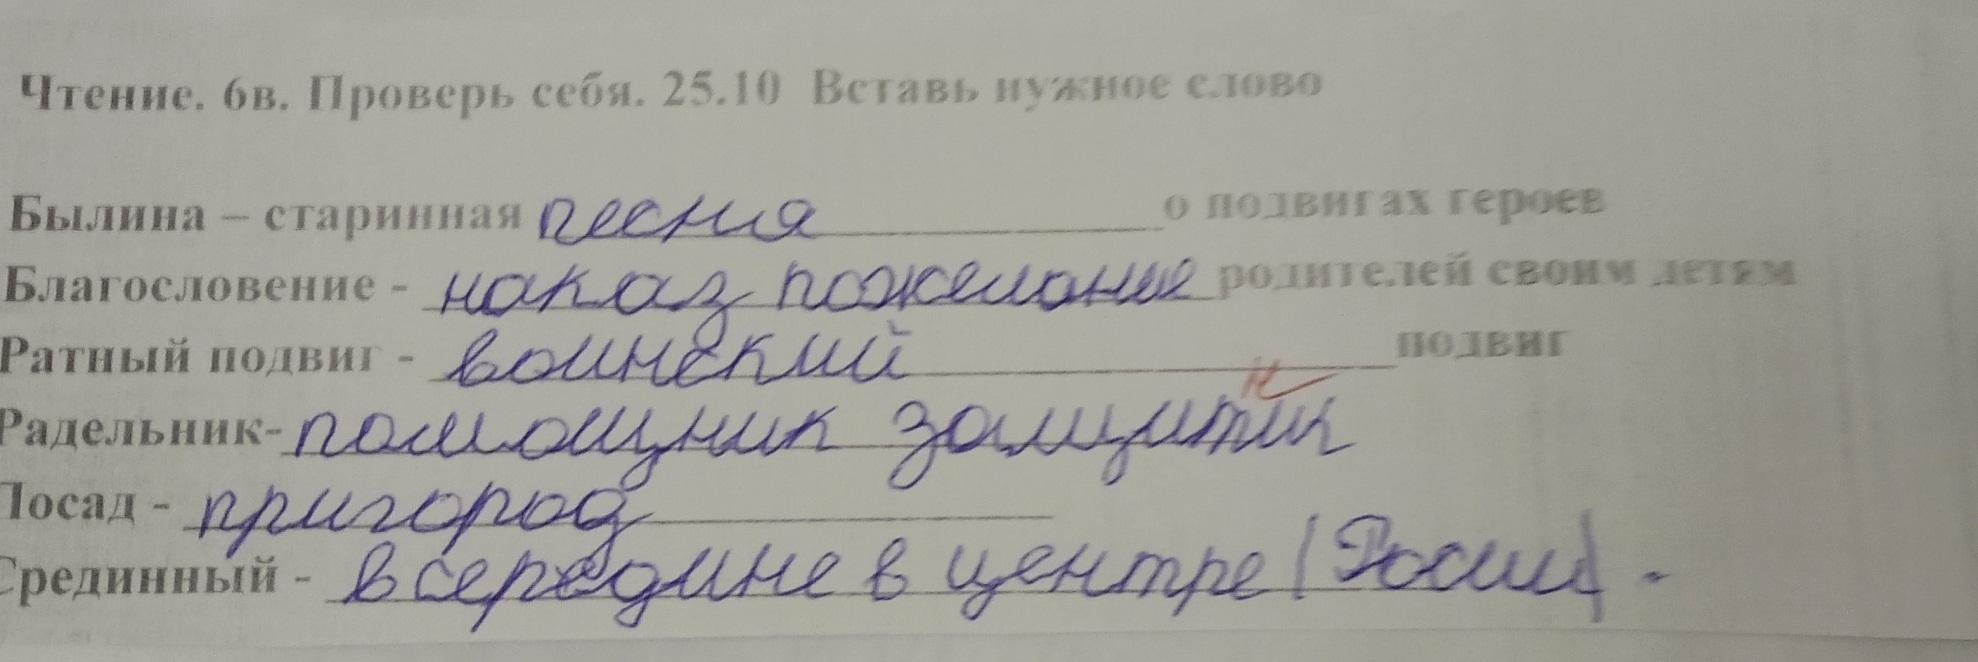 Чтение. 6в. Проверь себя. 25.10 Вставь нужное слово
Былина – старинная песния о подвигах героев
Благословение - наказ пожелание родителей своим детям
Ратный подвиг - воинский подвиг
Радельник- помощник защитик
Посад - пригород
Срединный - в середине в центре (Росии) -